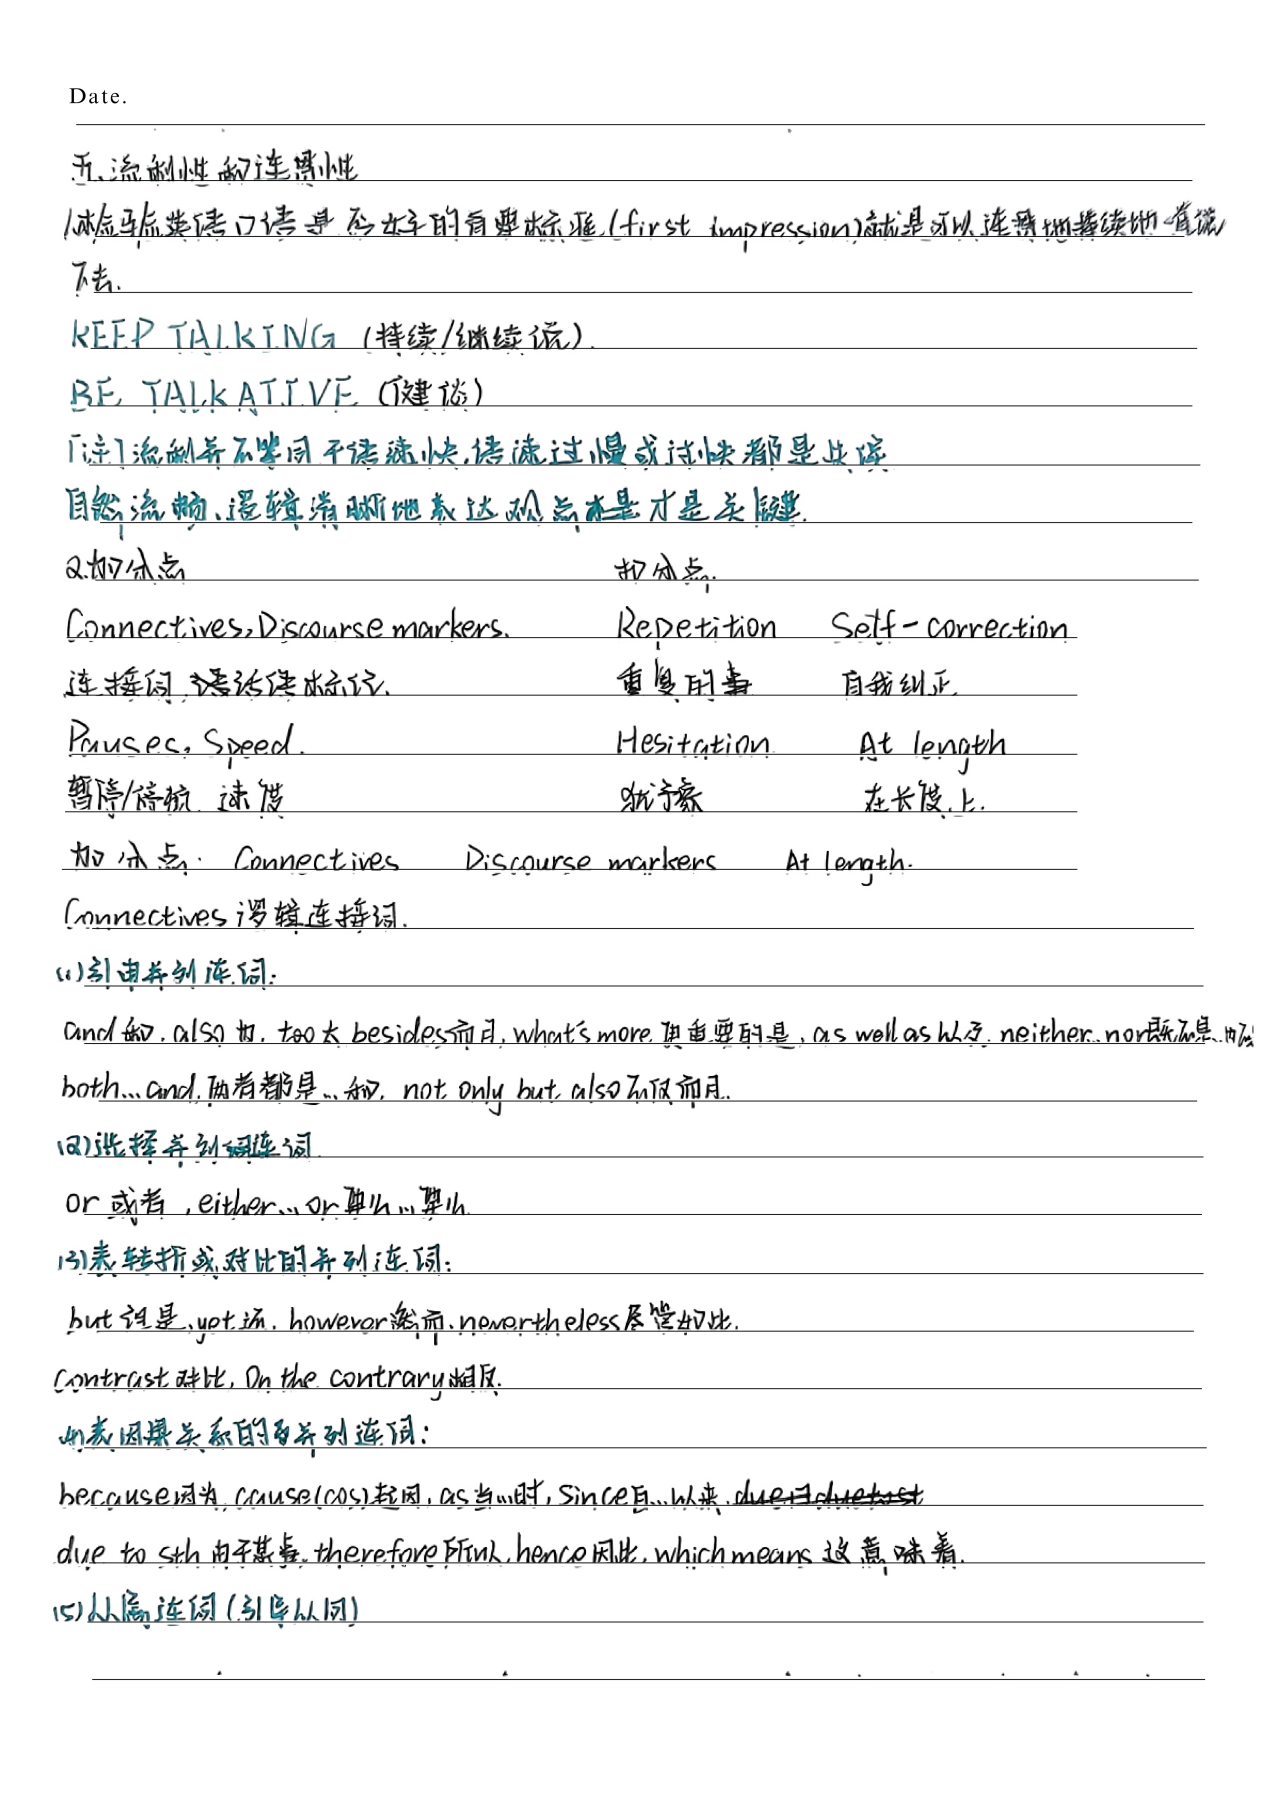 Date.
五、流利性和连贯性
1.检验英语口语是否好的首要标准(first impression)就是可以连贯地持续地一直说
下去.
KEEP TALKING (持续/继续说).
BE TALKATIVE (健谈)
[注]流利并不等同于语速快,语速过慢或过快都是失误
自然流畅、逻辑清晰地表达观点才是关键.
2.加分点 扣分点.
Connectives, Discourse markers. Repetition Self-correction
连接词、语话语标记. 重复的事 自我纠正
Pauses, Speed. Hesitation At length
暂停/停顿 速度 犹予豫 在长度上.
加分点: Connectives Discourse markers At length.
Connectives 逻辑连接词.
(1)引申并列连词:
and 和, also 也, too 太 besides而且, what's more 更重要的是, as well as 以及, neither...nor既不是...也不
both...and, 两者都是...和, not only but also不仅而且.
(2)选择并列连词
or 或者, either...or 要么...要么
(3)表转折或对比的并列连词:
but 但是, yet 还, however然而, nevertheless尽管如此.
Contrast 对比, On the contrary相反.
(4)表因果关系的并列连词:
because因为, cause(cos)起因, as当...时, since自...以来,
due to sth 由于某事, therefore所以, hence因此, which means 这意味着.
(5)从属连词(引导从句)